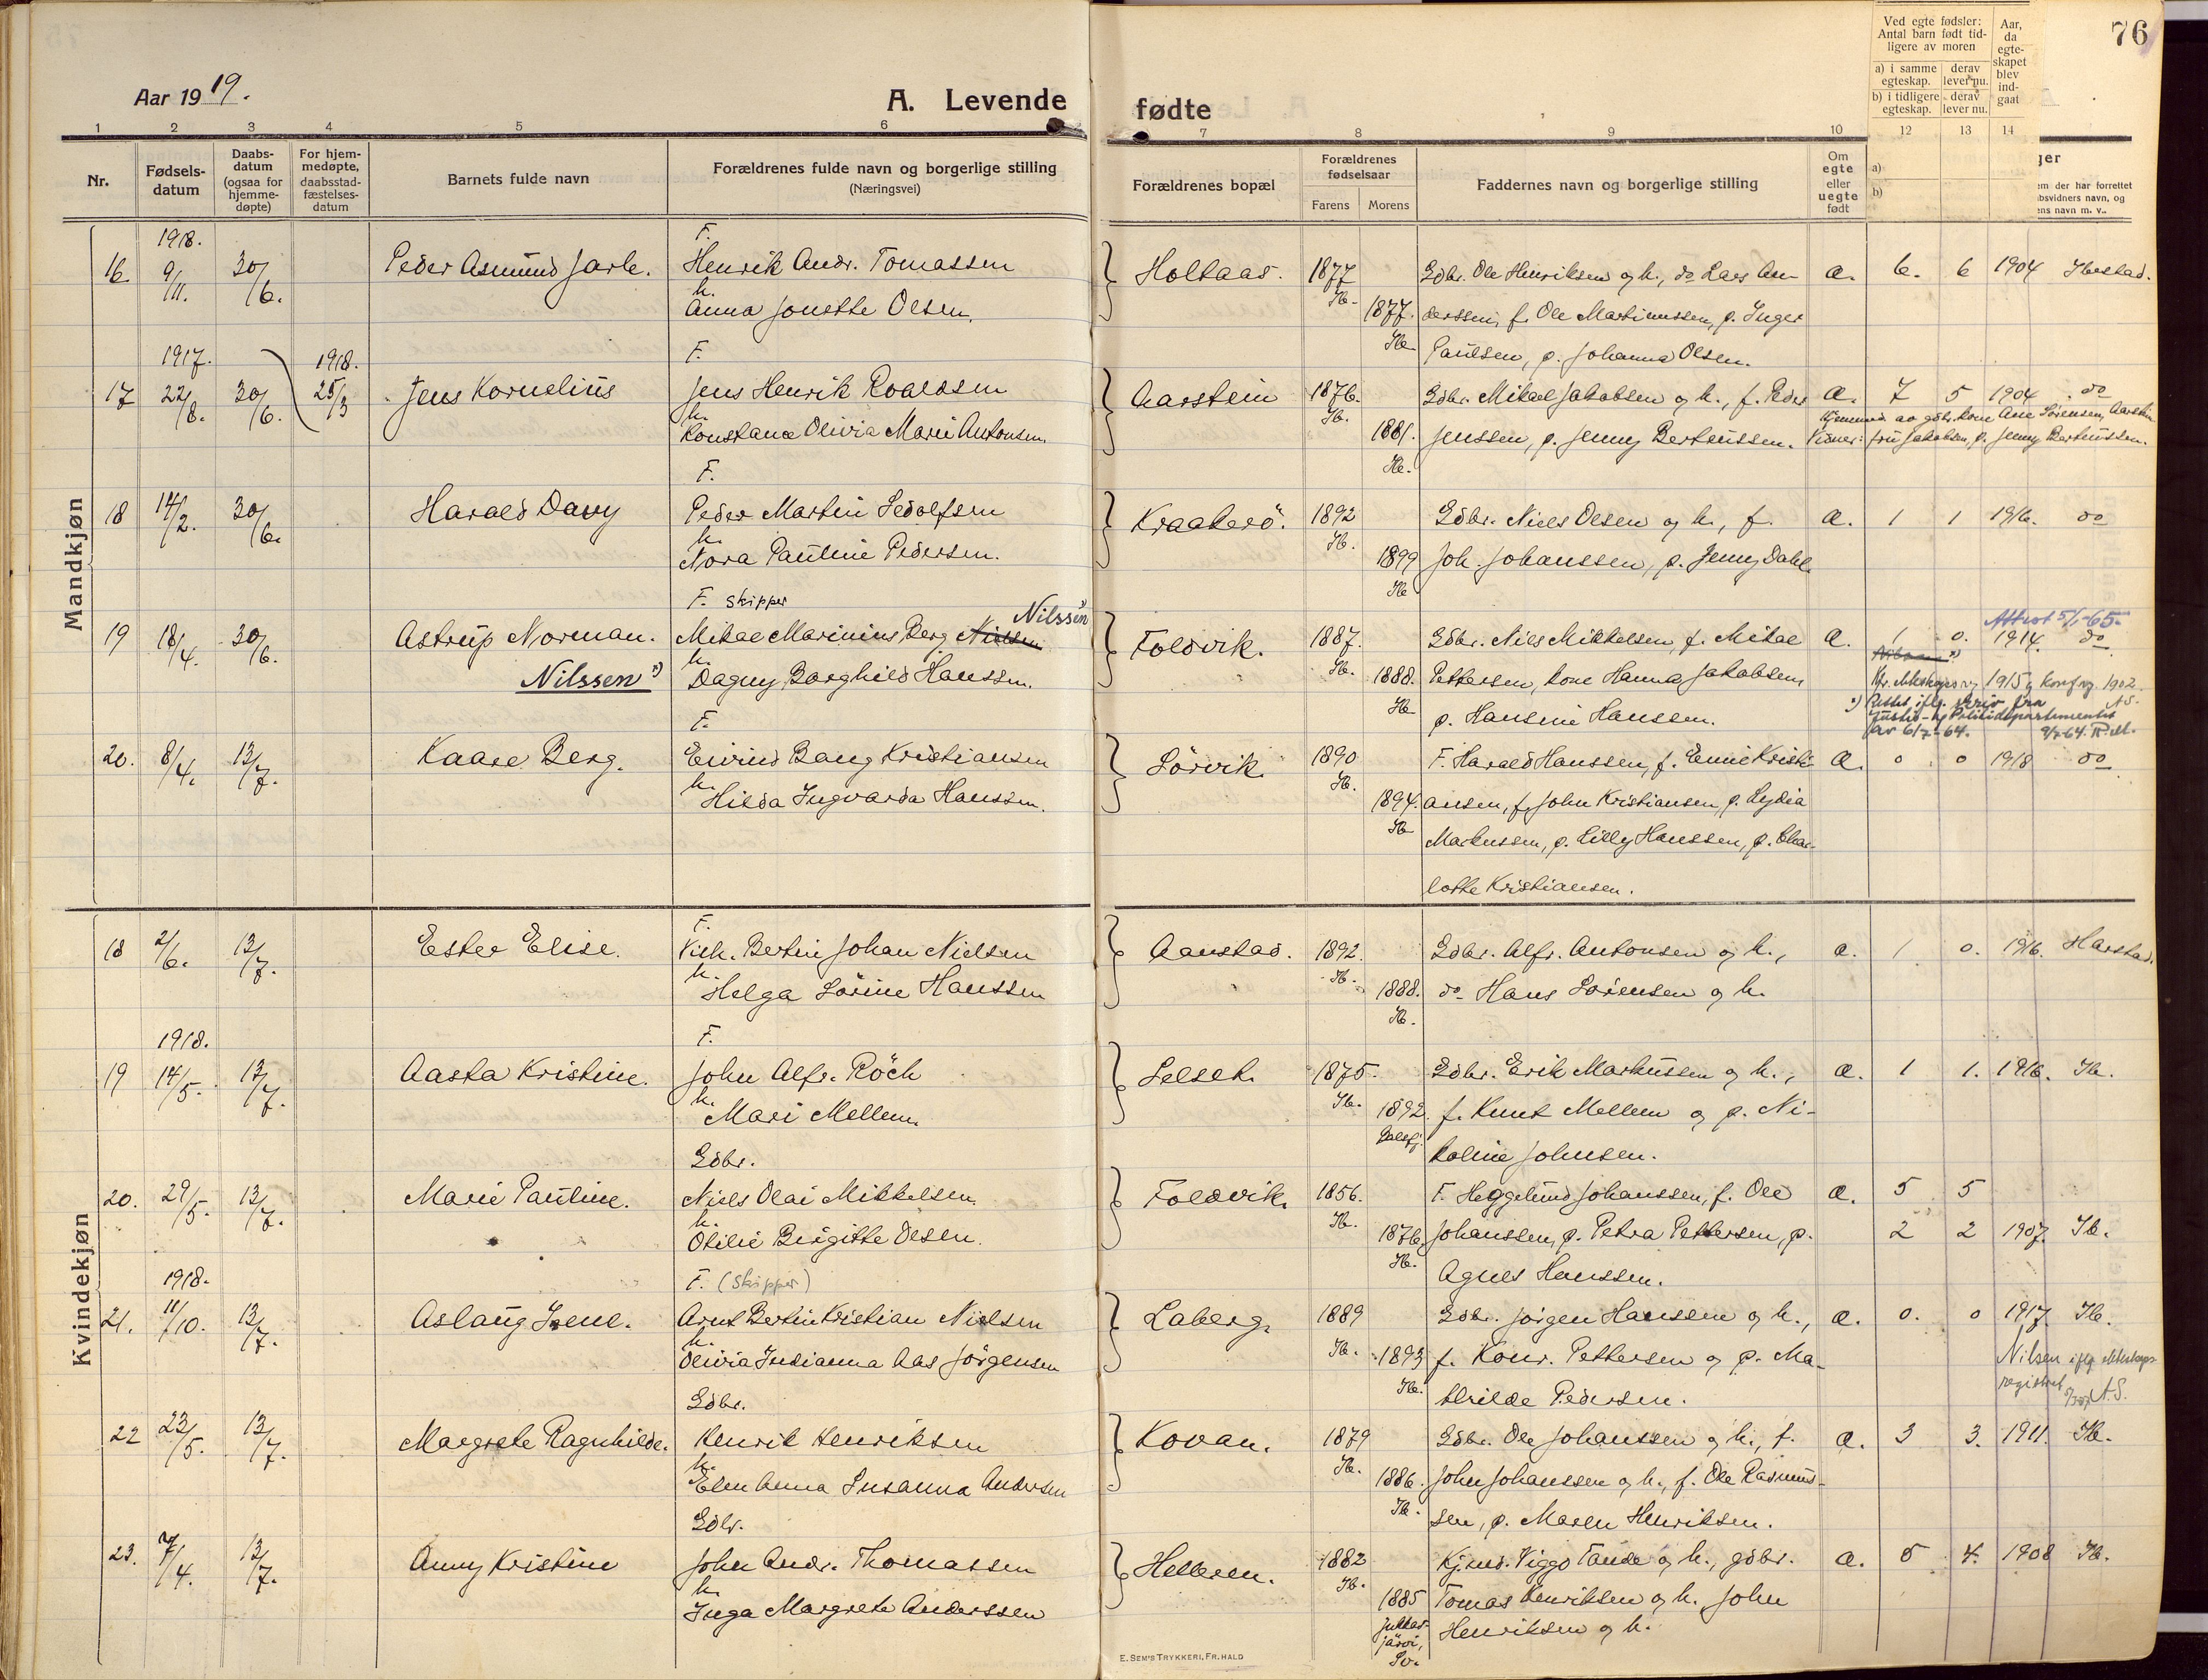 Aar 1919.
A. Levende fødte
76
1 2 3 4 5 6 7 8 9 10 12 13 14
Nr.
Fødsels-datum
Daabs-datum (ogsaa for hjemme-døpte)
For hjem-medøpte, daabsstad-fæstelses-datum
Barnets fulde navn
Forældrenes fulde navn og borgerlige stilling (Næringsvei)
Forældrenes bopæl
Forældrenes fødselsaar
Farens Morens
Faddernes navn og borgerlige stilling
Om egte eller uegte født
Ved egte fødsler: Antal barn født tid-ligere av moren
a) i samme egteskap. derav lever nu.
b) i tidligere egteskap. derav lever nu.
Aar, da egte-skapet blev ind-gaat
a)
b)
ger
em der har forrettet
bsvidners navn, og
ens navn m. v..
Mandkjøn
1918. F.
16. 9/11. 30/6. Peder Asmund Jarle. Henrik Andr. Tomassen Holtaas. 1877 Gdbr. Ole Henriksen og h., do Lars An- a. 6. 6 1904 Ibestad.
h. Anna Jonette Olsen. Ib. 1877. derssen, f. Ole Martinussen, p. Inger
Ib. Paulsen, p. Johanna Olsen.
1917. 1918. F.
17 22/8. 30/6. 25/3 Jens Kornelius Jens Henrik Roaldsen Aarstein 1876. Gdbr. Mikael Jakobsen og h., f. Peder a. 7 5 1904 do
h. Konstance Olivia Marie Antonsen. Ib. 1881. Jenssen, p. Jenny Berteussen. Hjemmed. av gdbr. kone Ane Sørensen, Aarstein
Ib. Vidner: fru Jakobsen, p. Jenny Berteussen.
F.
18 14/2. 30/6. Harald Davy Peder Martin Sedolfsen Kraakerö. 1892 Gdbr. Niels Olsen og h., f. a. 1 1 1916. do
h. Nora Pauline Pedersen. Ib. 1899 Joh. Johanssen, p. Jenny Dahl.
Ib
F. skipper Nilssen
19 18/4. 30/6. Astrup Norman. Mikal Marinius Berg Nielsen Foldvik. 1887. Gdbr. Niels Mikkelsen, f. Mikal a. 1 0. 1914. do
Attest 5/1-65.
Nilssen h. Dagny Borghild Hanssen. Ib. 1888. Pettersen, kone Hanna Jakobsen,
Ib p. Hansine Hanssen.
1915 konf. 1902. A.S.
Justis- og Politidepartementet
av 6/7-64.
F.
20. 8/4. 13/7. Kaare Berg. Eivind Bang Kristiansen Sörvik. 1890 F. Harald Hanssen, f. Emil Kristi- a. 0 0 1918 do
h. Hilda Ingvarda Hanssen. Ib. 1894. ansen, f. John Kristiansen, p. Lydia
Ib Markussen, p. Lilly Hanssen, p. Char-
lotte Kristiansen.
Kvindekjøn
F.
18 2/6. 13/7. Ester Elise. Vick. Bertin Johan Nielsen Aanstad. 1892. Gdbr. Alfr. Antonsen og h., a. 1 0. 1916. Harstad.
h. Helga Sörine Hanssen Ib. 1888. do Hans Sörensen og h.
Ib.
1918. F.
19 14/5. 13/7. Aasta Kristine. John Alfr. Röch Selset. 1875. Gdbr. Erik Markussen og h., a. 1 1. 1916. Ib.
h. Mari Mellem. Ib. 1892. f. Knut Mellem og p. Ni-
Balsfj. koline Johnsen.
Gdbr.
20. 29/5. 13/7. Marie Pauline. Niels Olai Mikkelsen Foldvik. 1856. F. Heggelund Johanssen, f. Ole a. 5 5
h. Otilie Birgitte Olsen. Ib. 1876. Johanssen, p. Petra Pettersen, p. 2 2 1907. Ib.
Ib. Agnes Hanssen.
1918. F. (Skipper)
21. 11/10. 13/7. Aslaug Irene. Arnt Bertin Kristian Nielsen Laberg. 1889 Gdbr. Jörgen Hanssen og h., a. 0. 0 1917 Ib.
h. Olivia Indianna Aas Jörgensen Ib. 1893 f. Konr. Pettersen og p. Ma-
Ib. thilde Pedersen.
Nilsen iflg. ekteskaps-
registret A.S.
Gdbr.
22 23/5. 13/7. Margrete Ragnhilde. Henrik Henriksen Kovan. 1879 Gdbr. Ole Johanssen og h., f. a. 3 3. 1911. Ib.
h. Elen Anna Susanna Andersen Ib. 1886. John Johanssen og h., f. Ole Rasmus-
Ib. sen, p. Maren Henriksen.
Gdbr.
23. 7/4. 13/7. Anny Kristine John Andr. Thomassen Helleren. 1882 Kjmd. Viggo Tande og h., gdbr. a. 5 4. 1908 Ib.
h. Inga Margrete Anderssen Ib. 1885 Tomas Henriksen og h. John
Jukkas-järvi, Sv. Henriksen og h.
E. SEM'S TRYKKERI, FR.HALD